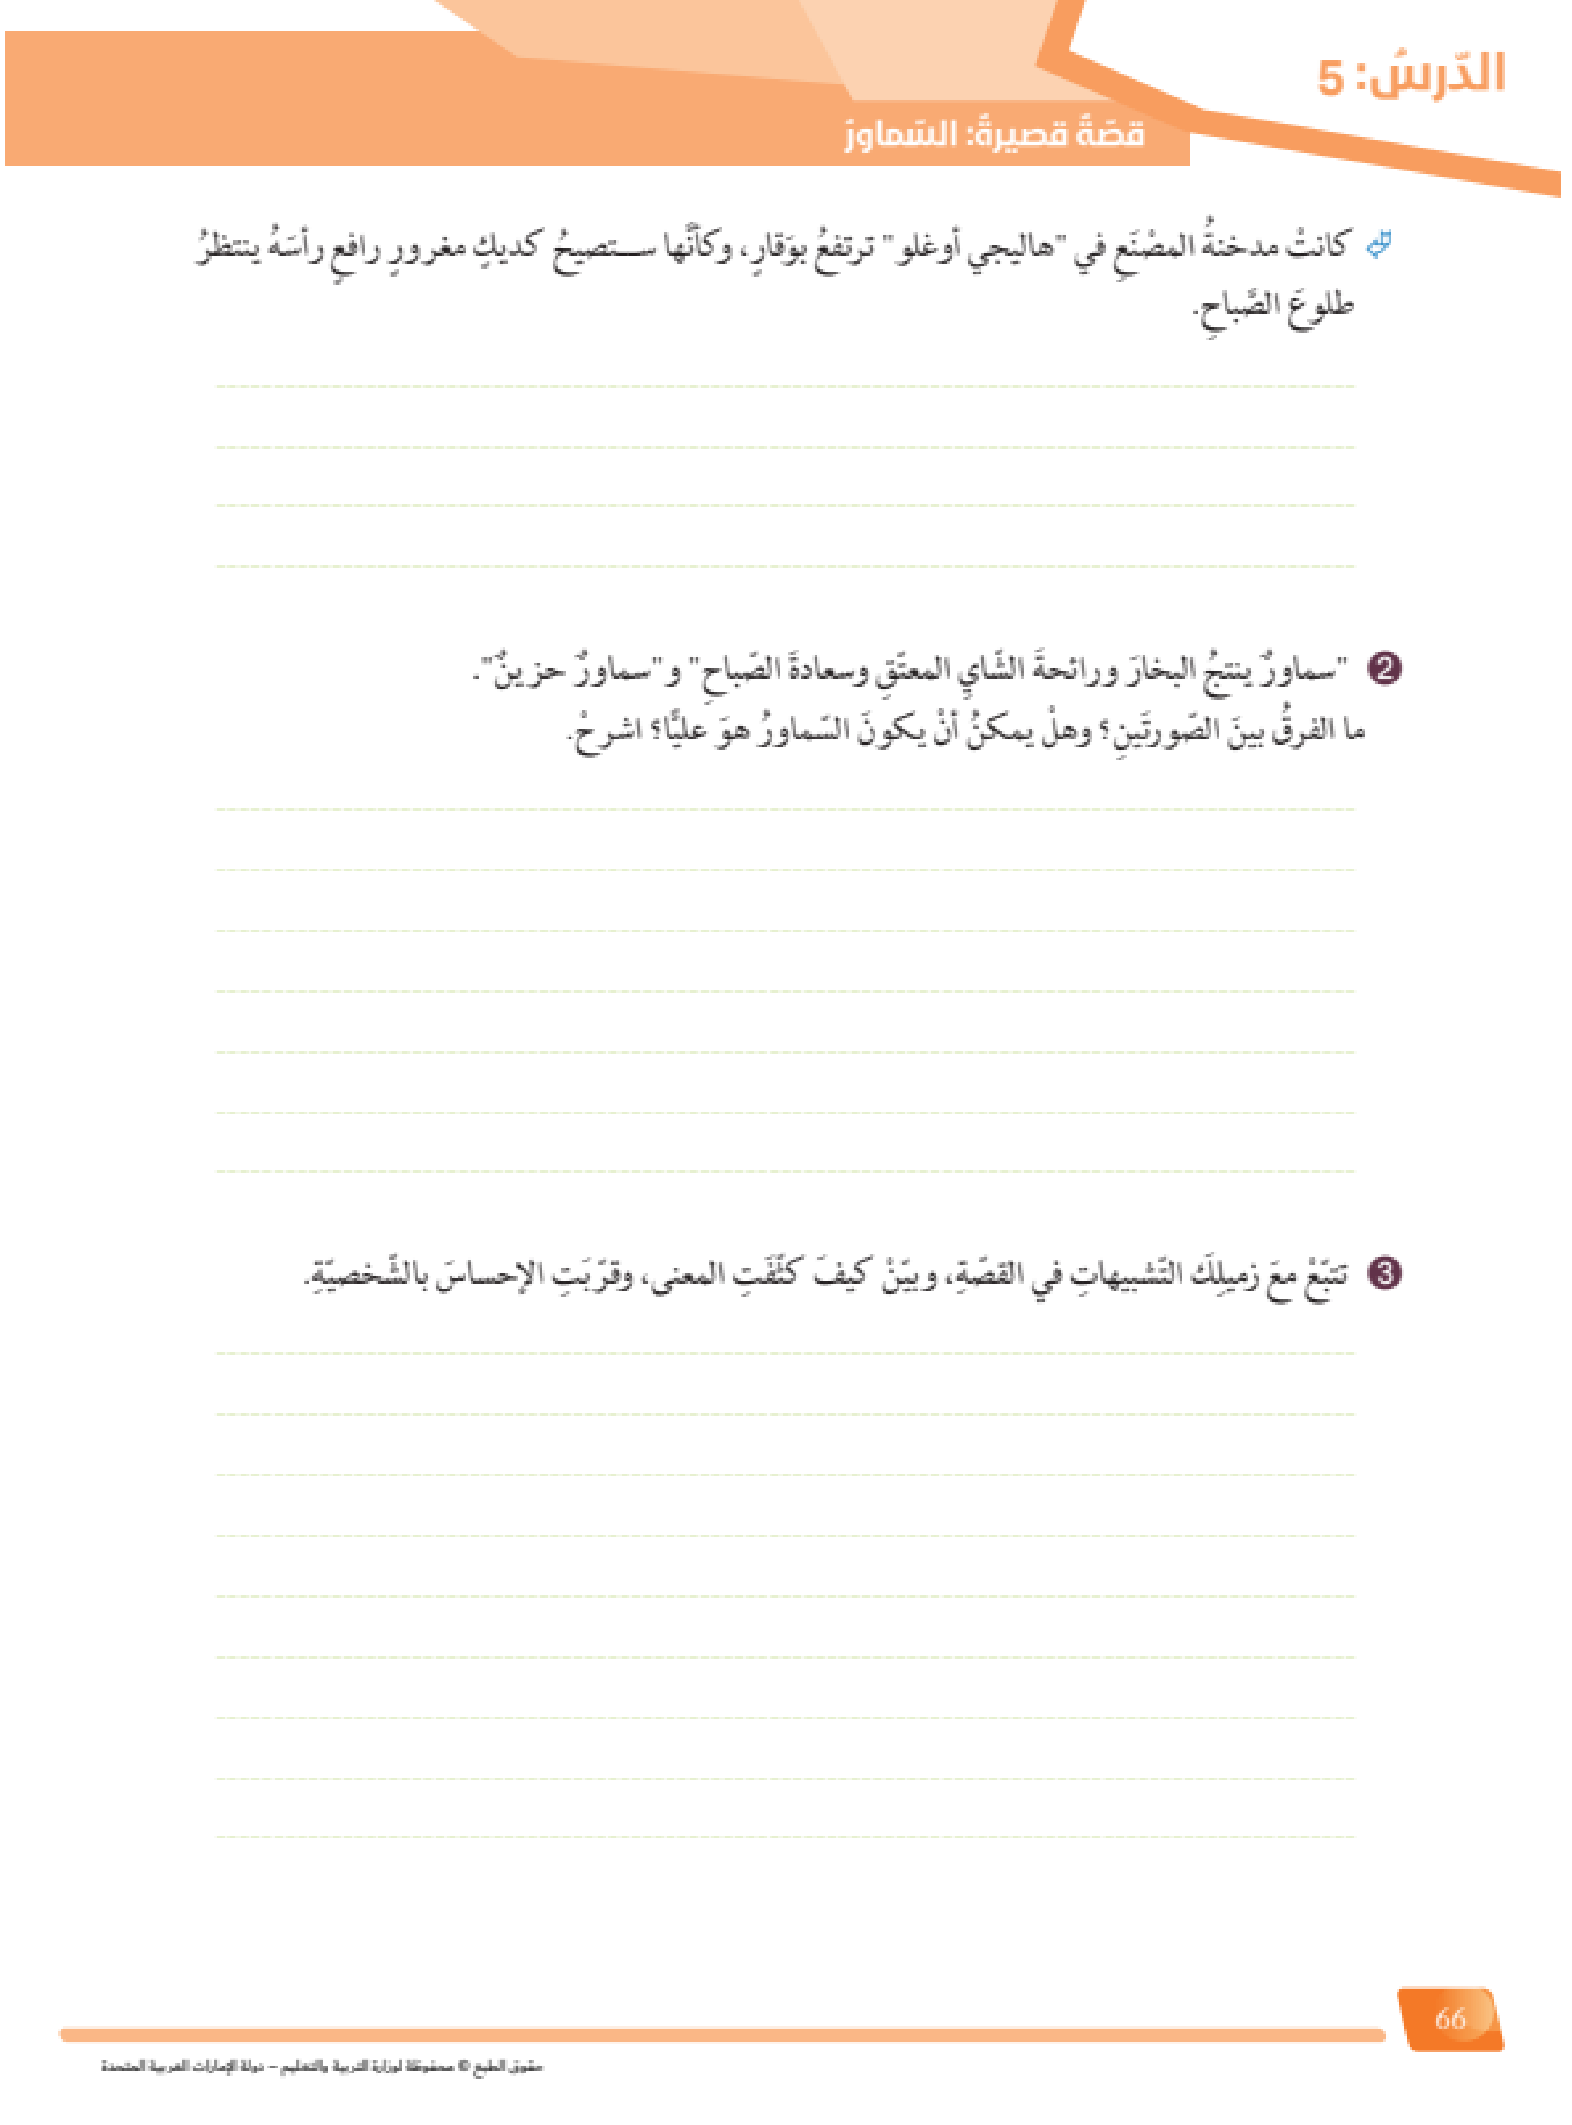 الدّرسُ: 5
قصّةٌ قصيرةٌ: السّماورُ
كانتْ مدخنةُ المصْنَعِ في "هاليجي أوغلو" ترتفعُ بوَقارٍ، وكأنَّها ستصيحُ كديكٍ مغرورٍ رافعٍ رأسَهُ ينتظرُ
طلوعَ الصَّباحِ.
2 "سماورٌ ينتجُ البخارَ ورائحةَ الشّايِ المعتّقِ وسعادةَ الصّباحِ" و"سماورٌ حزينٌ".
ما الفرقُ بينَ الصّورتَينِ؟ وهلْ يمكنُ أنْ يكونَ السّماورُ هوَ عليًّا؟ اشرحْ.
3 تتبّعْ معَ زميلِكَ التّشبيهاتِ في القصّةِ، وبيّنْ كيفَ كثّفَتِ المعنى، وقرّبَتِ الإحساسَ بالشّخصيّةِ.
66
حقوق الطبع © محفوظة لوزارة التربية والتعليم – دولة الإمارات العربية المتحدة